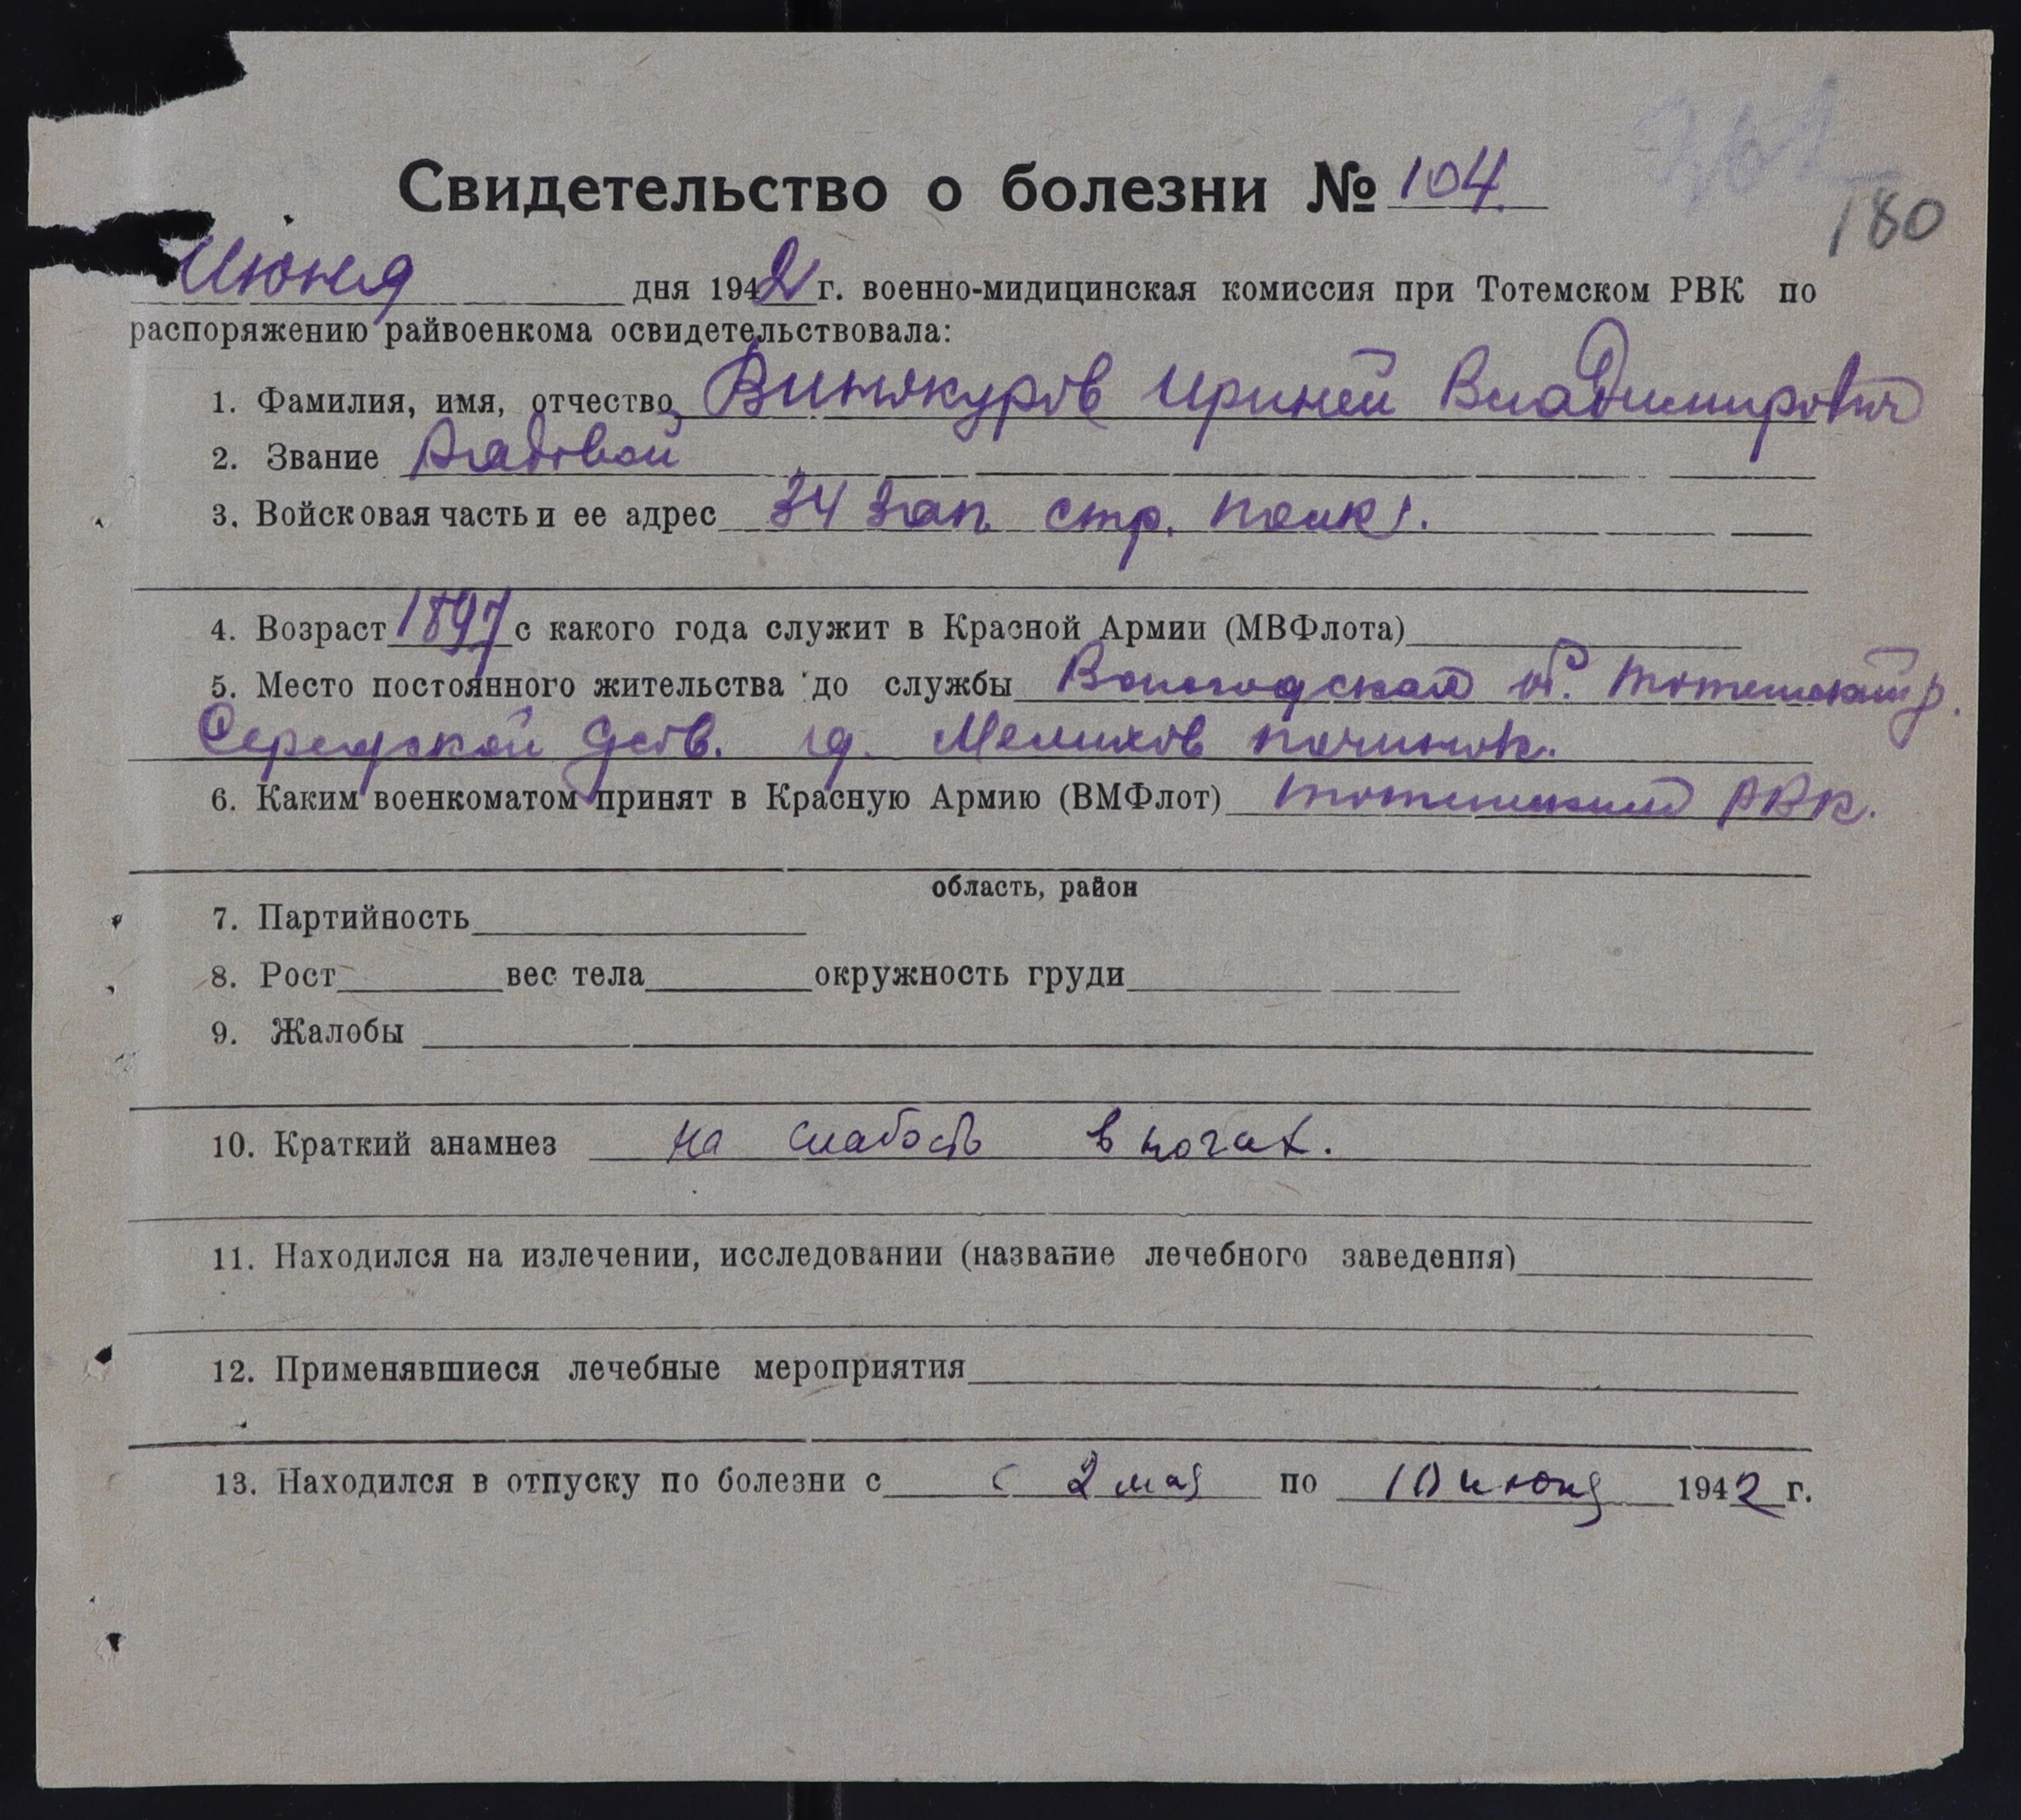 180
Свидетельство о болезни № 104.
Июня дня 1942 г. военно-мидицинская комиссия при Тотемском РВК по
распоряжению райвоенкома освидетельствовала:
1. Фамилия, имя, отчество Винокуров Ириней Владимирович
2. Звание Рядовой
3. Войсковая часть и ее адрес 34 Зап. стр. полк.
4. Возраст 1897 с какого года служит в Красной Армии (МВФлота)
5. Место постоянного жительства до службы Вологодская об. Тотемский р.
Середской с/сов. д. Мелихов починок.
6. Каким военкоматом принят в Красную Армию (ВМФлот) Тотемский РВК.
область, район
7. Партийность
8. Рост вес тела окружность груди
9. Жалобы
10. Краткий анамнез на слабость в ногах.
11. Находился на излечении, исследовании (название лечебного заведения)
12. Применявшиеся лечебные мероприятия
13. Находился в отпуску по болезни с с 2 мая по 10 июня 1942 г.